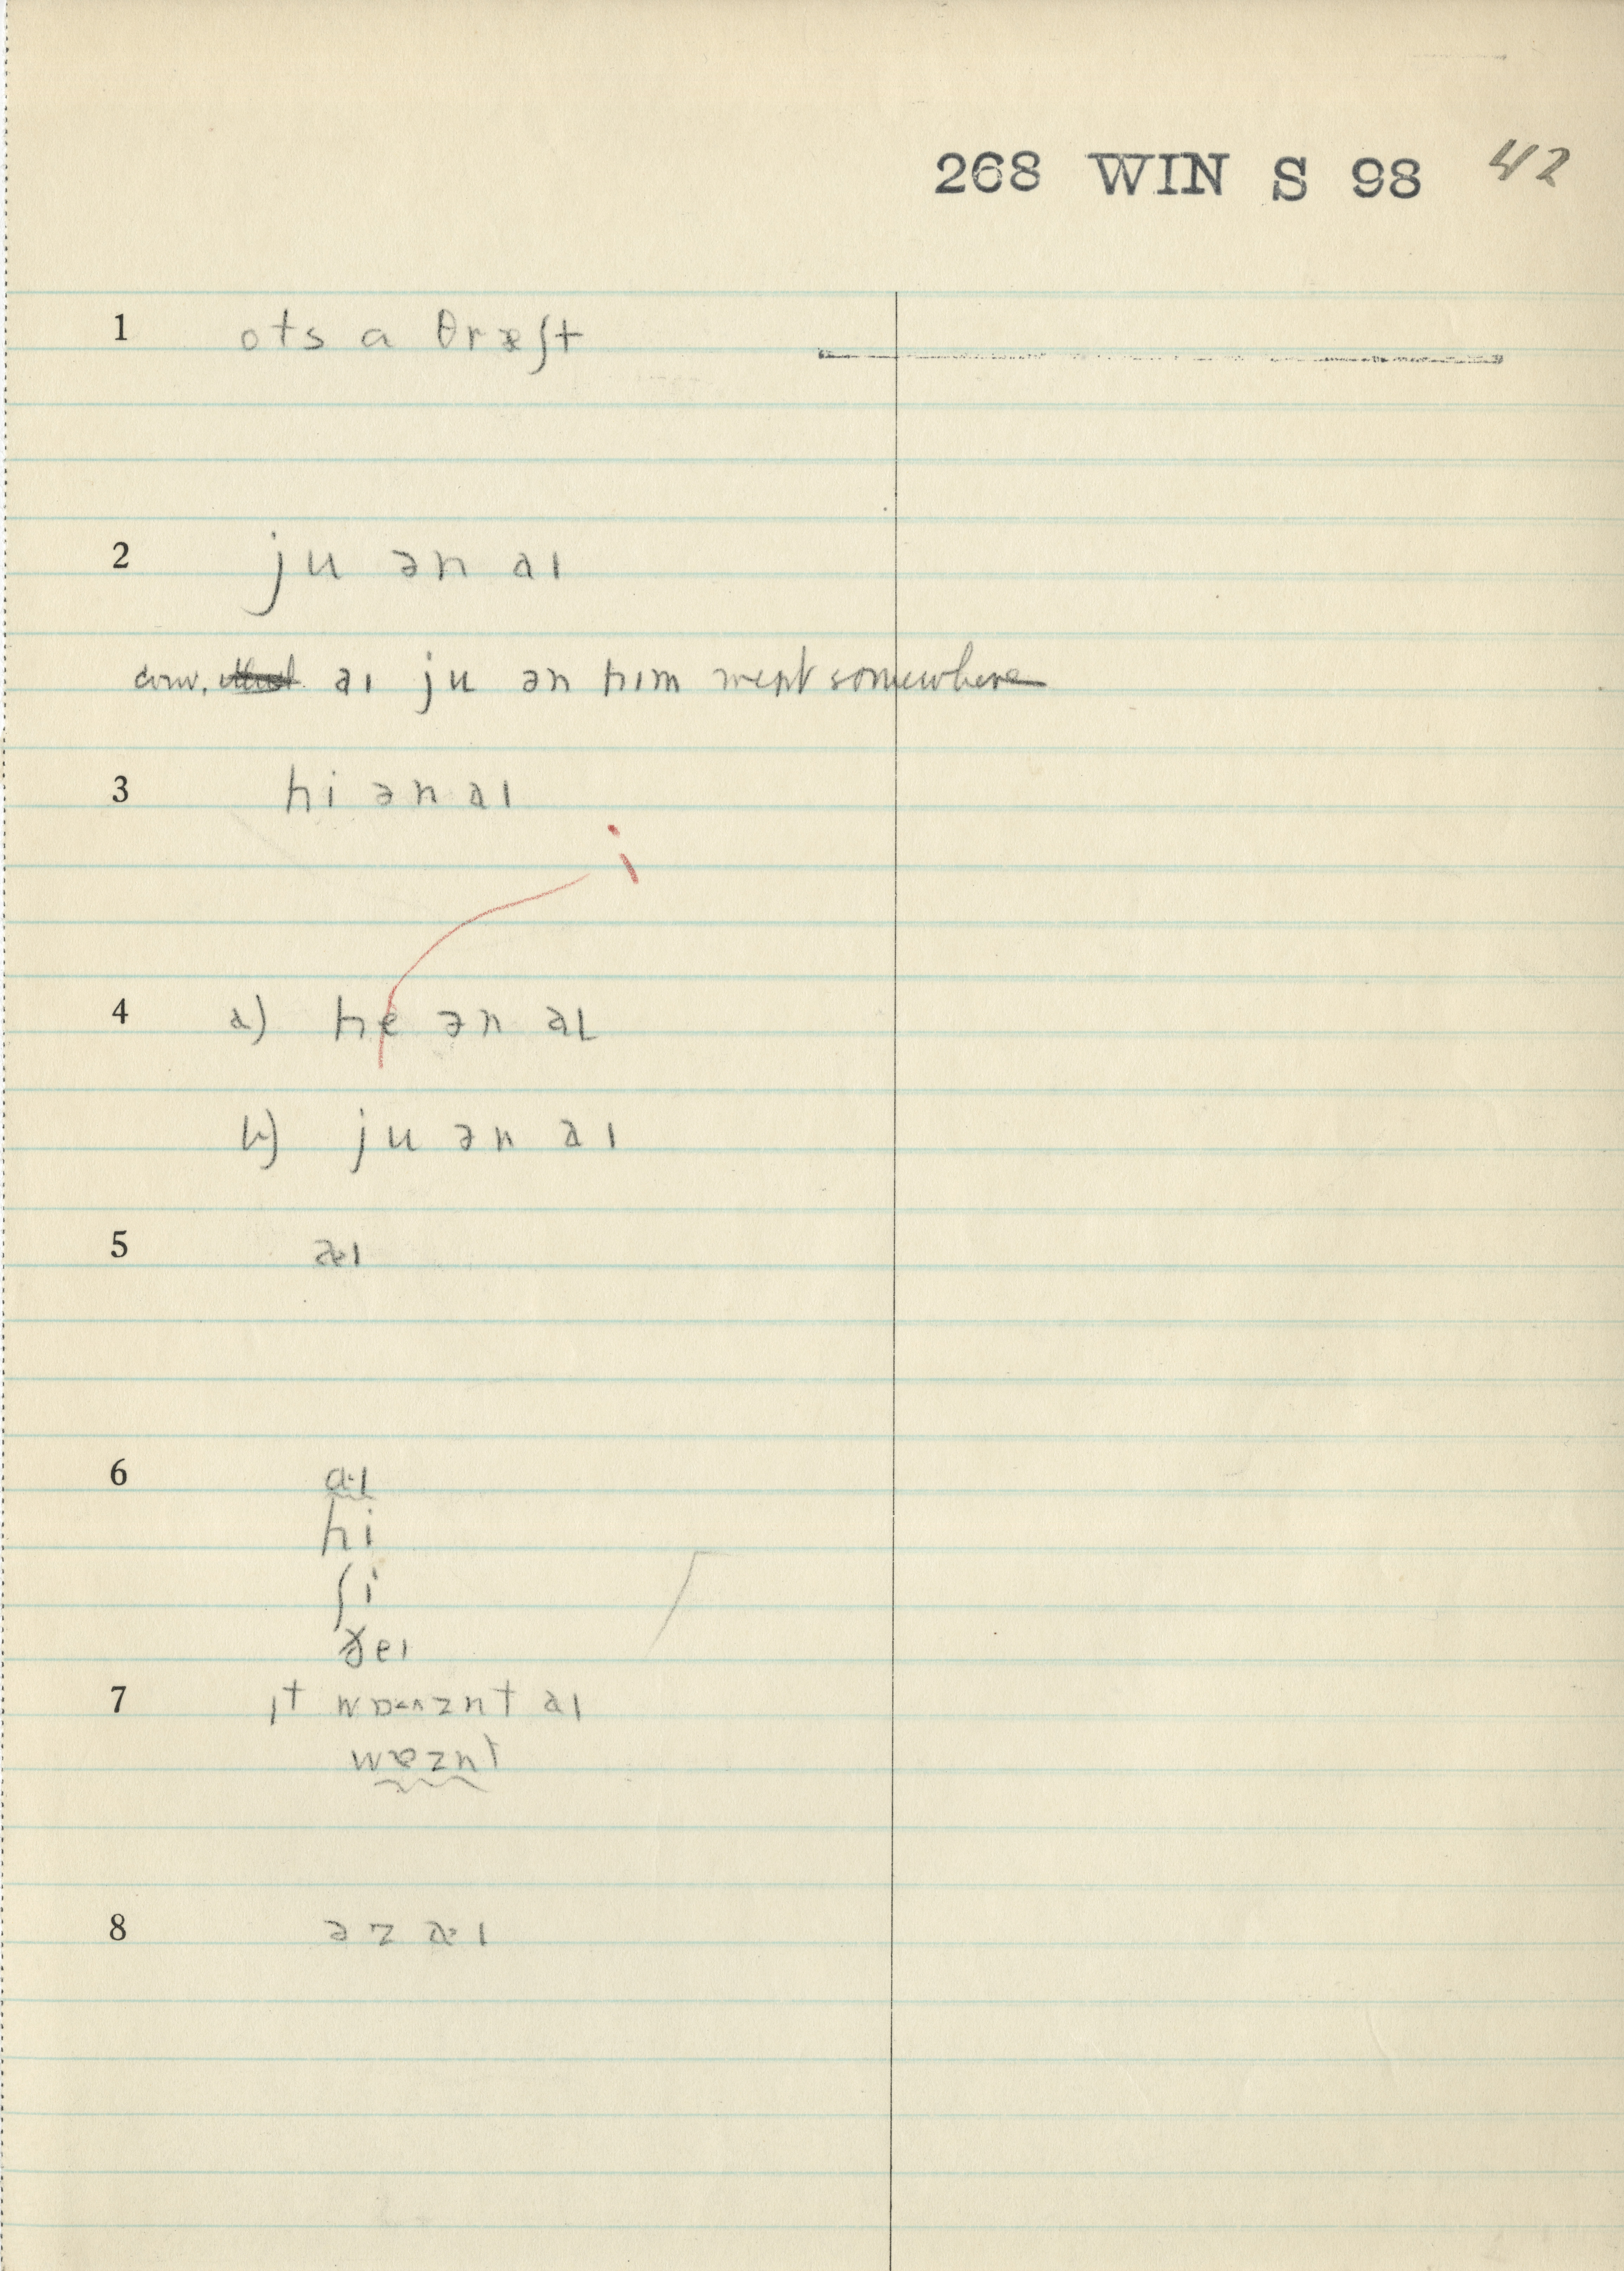 268 WIN S 98 42
1 ots a θræʃt
2 ju ən aɪ
conv. aɪ ju ən hɪm went somewhere
3 hi ən aɪ
i
4 a) he ən aɪ
b) ju ən aɪ
5 aɪ
6 a·ɪ
hi
ʃi
ðeɪ
7 ɪt aɪ
wɒznt
8 əz aɪ